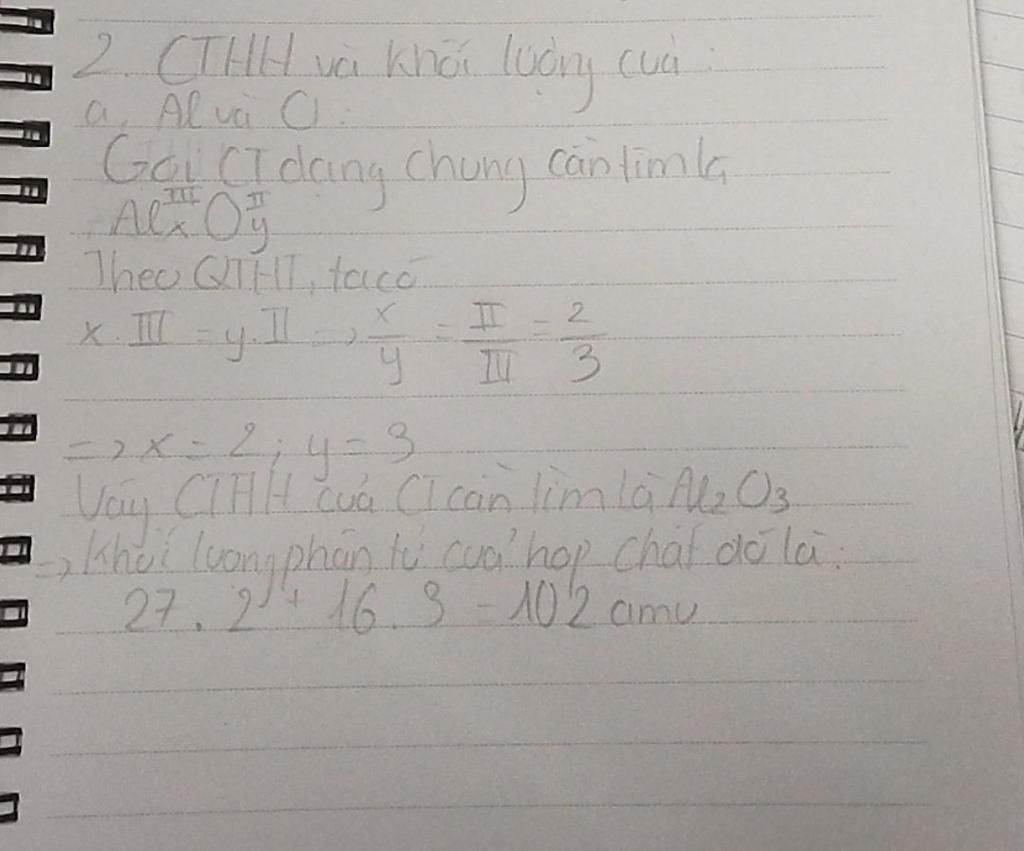 2. CTHH và khối lượng của :
a, Al và O :
Gọi CT dạng chung cần tìm là
Alₓᴵᴵᴵ Oᵧᴵᴵ
Theo QTHT, ta có
x . III = y. II => x/y = II/III = 2/3
=> x = 2 ; y = 3
Vậy CTHH của CT cần tìm là Al₂O₃
=> Khối lượng phân tử của hợp chất đó là :
27 . 2 + 16 . 3 = 102 amu